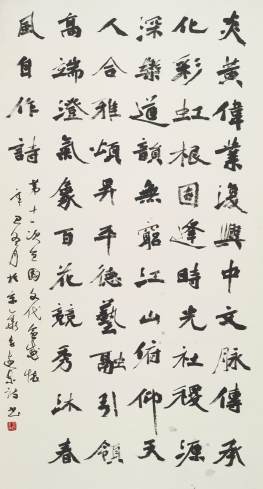 炎黃偉業復興中文脈傳承
化彩虹根固逢時光社稷源
深樂道韻無窮江山俯仰天
人合雅頌昇平德藝融引領
高端澄氣象百花競秀沐春
風自作詩
第十一次全國文代會感懷
辛丑冬月於京華